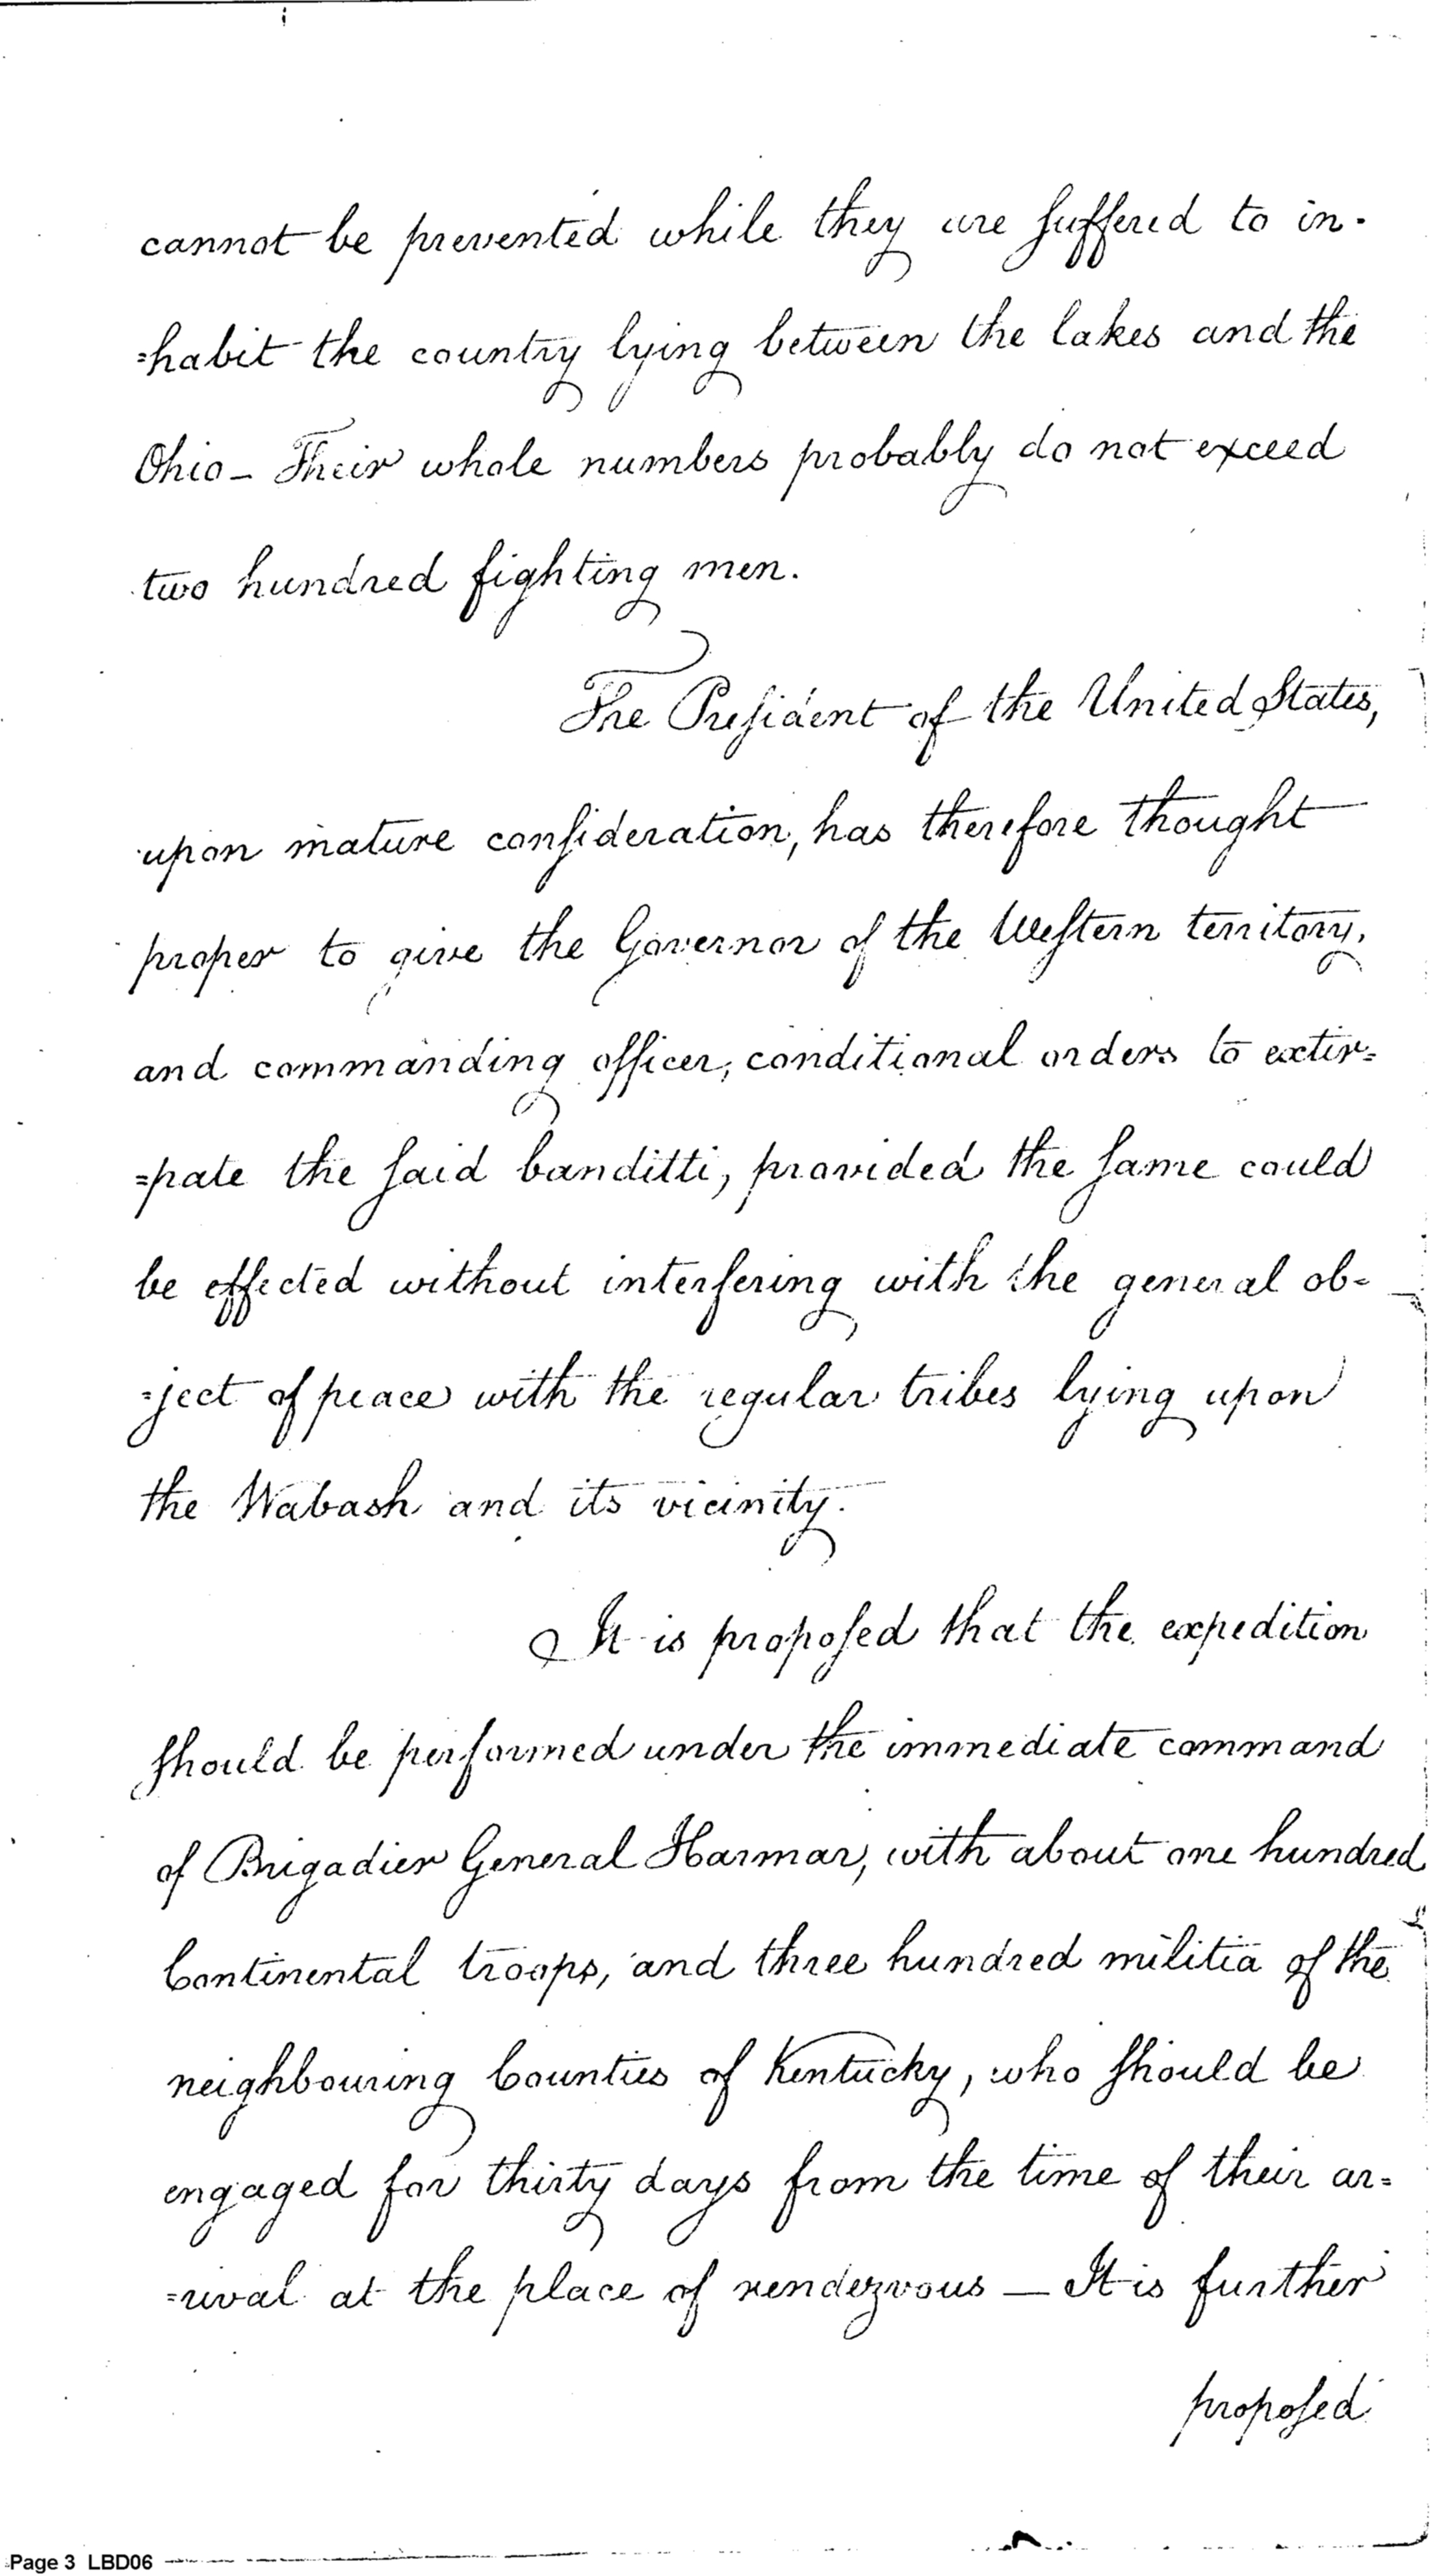 cannot be prevented while they are suffered to in-
=habit the country lying between the lakes and the
Ohio – Their whole numbers probably do not exceed
two hundred fighting men.
The President of the United States,
upon mature consideration, has therefore thought
proper to give the Governor of the Western territory,
and commanding officer, conditional orders to extir=
=pate the said banditti, provided the same could
be effected without interfering with the general ob=
=ject of peace with the regular tribes lying upon
the Wabash and its vicinity.
It is proposed that the expedition
should be performed under the immediate command
of Brigadier General Harmar, with about one hundred
Continental troops, and three hundred militia of the
neighbouring Counties of Kentucky, who should be
engaged for thirty days from the time of their ar=
=rival at the place of rendezvous — It is further
proposed
Page 3 LBD06